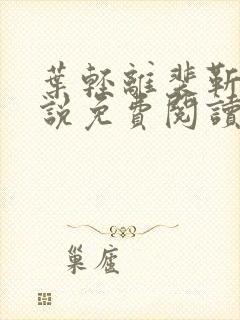 葉輕離裴靳
說免費閱讀
巢座